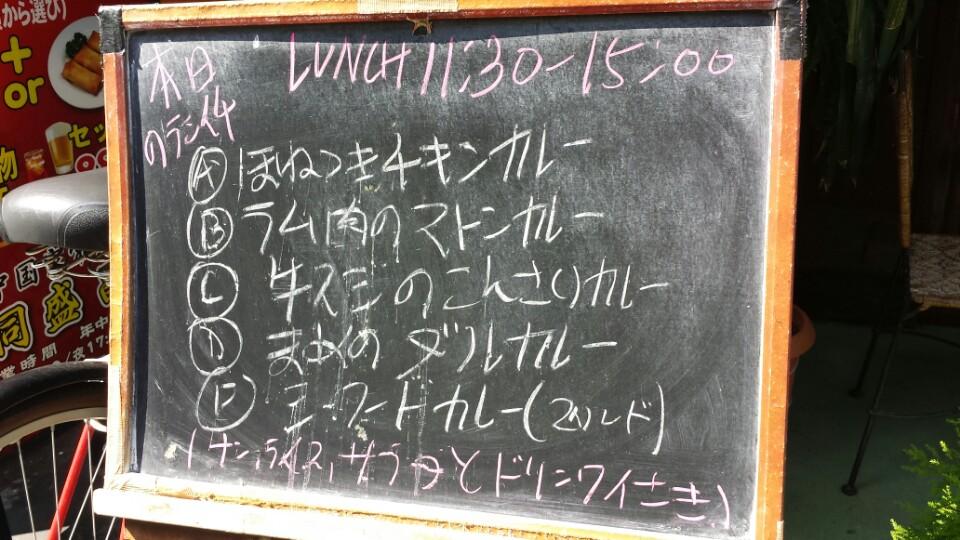 から選び)
+
or
セッ
物
本日
のランイチ
LUNCH 11:30~15:00
Ⓐ ほねつきチキンカレー
Ⓑ ラム肉のマトンカレー
Ⓒ 牛スジのこんさりカレー
Ⓓ まめのダルカレー
Ⓔ シーフードカレー(マイルド)
(ナン,ライス,サラダとドリンワイさき)
同盛
業時間 年中